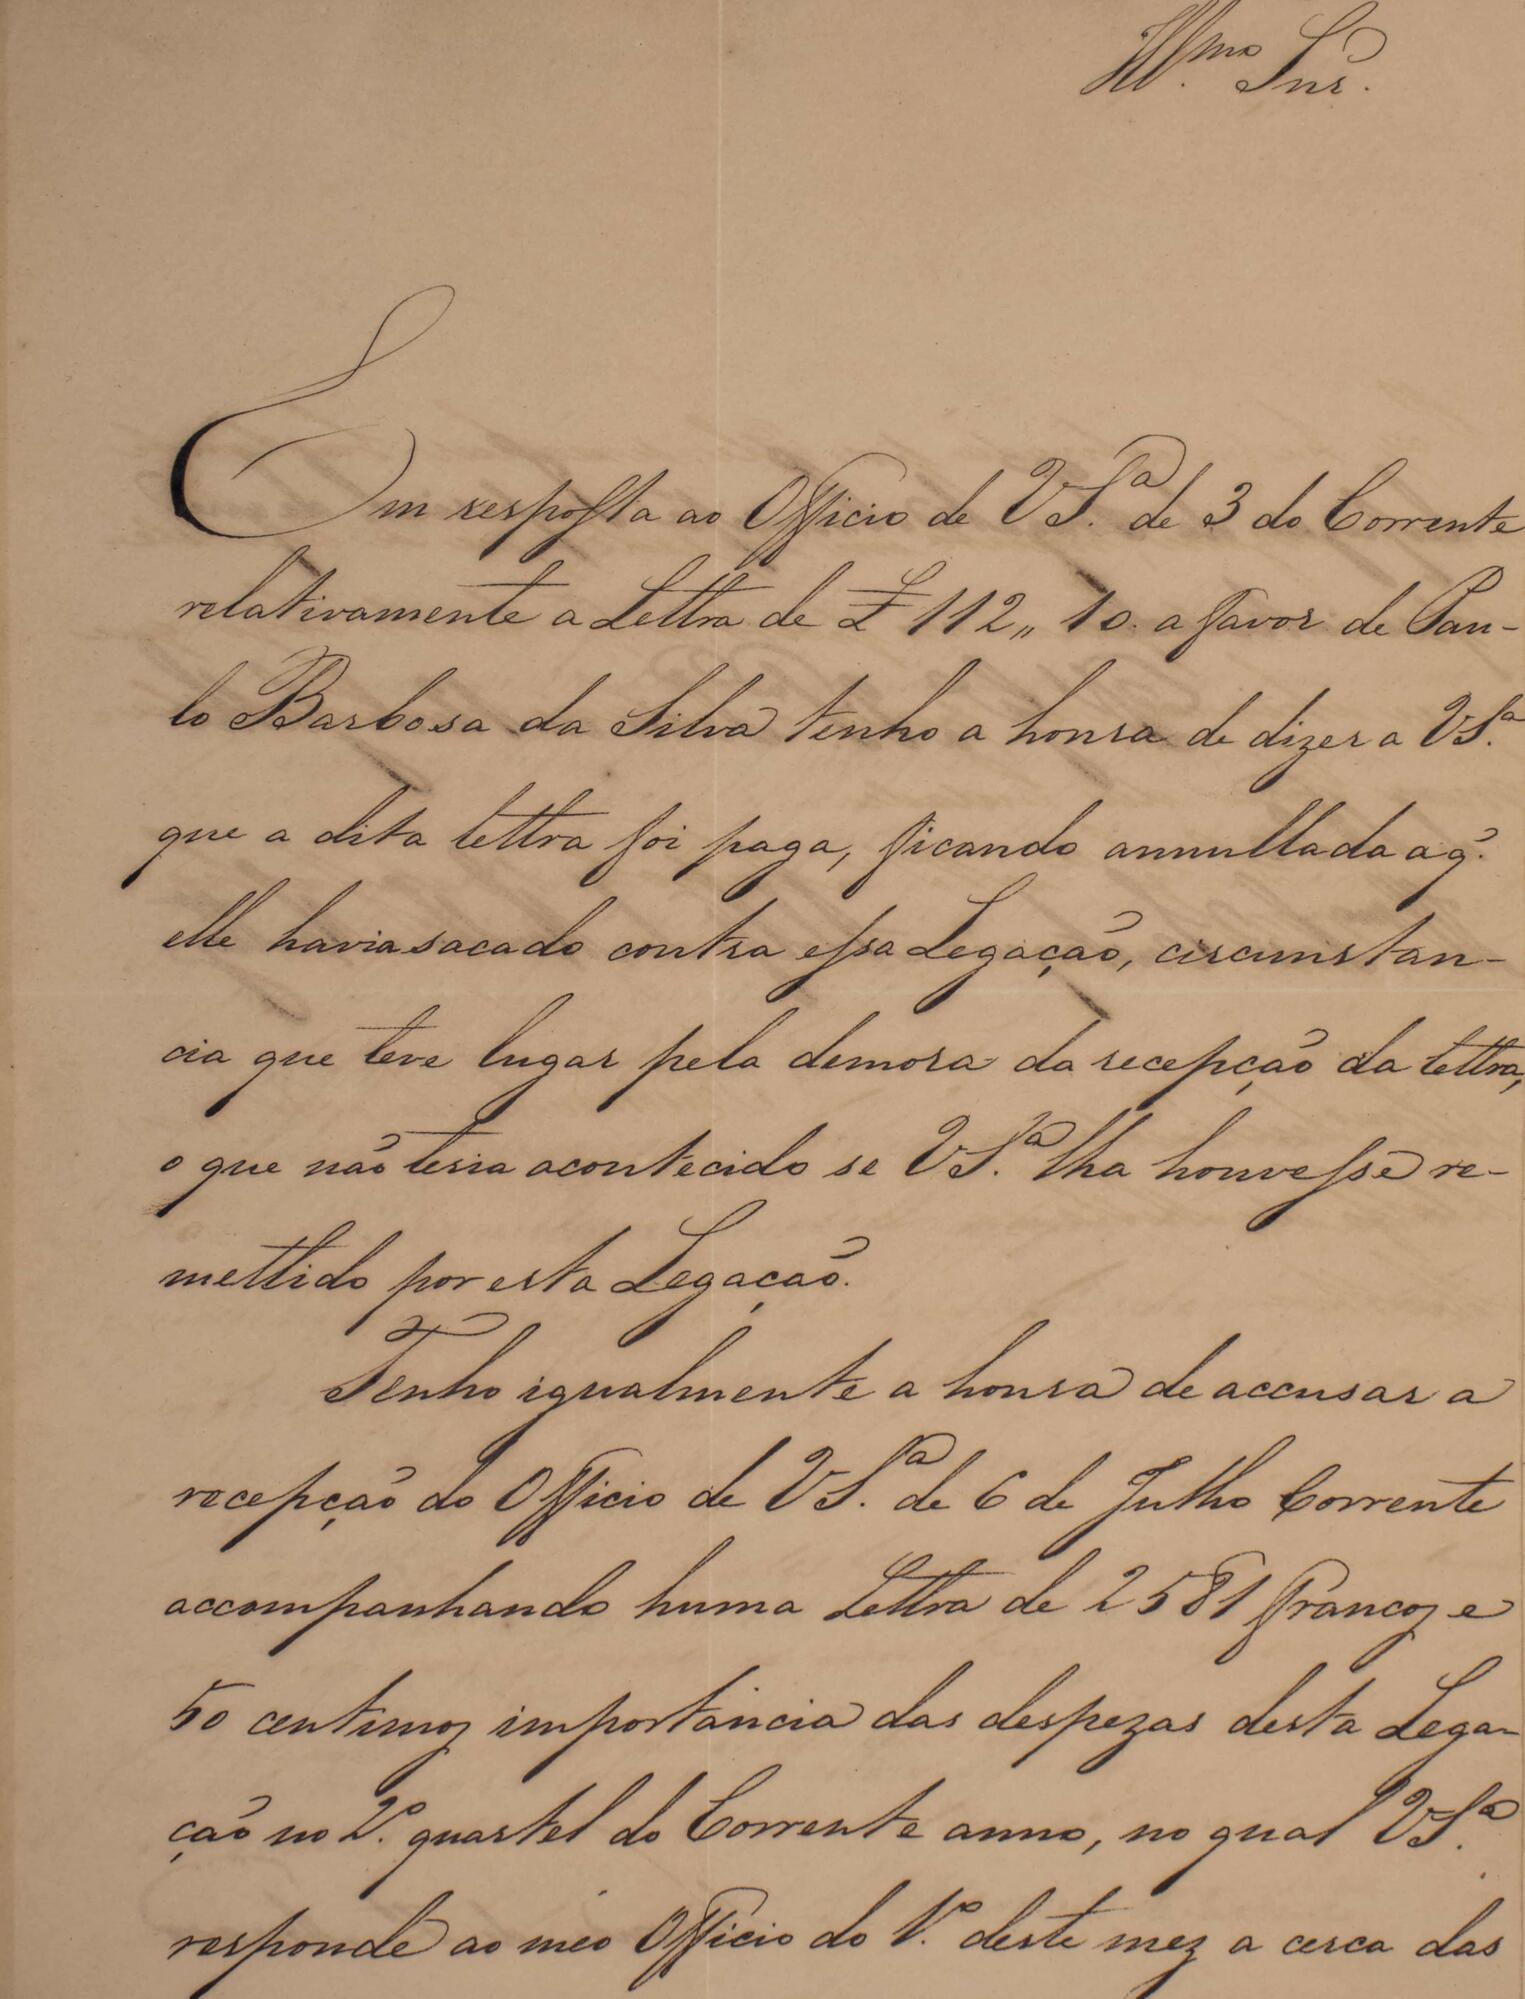 Illmo. Snr.
Em resposta ao Officio de VSa. de 3 do Corrente
relativamente a Lettra de £ 112,, 10. a favor de Pau-
lo Barbosa da Silva tenho a honra de dizer a VSa.
que a dita lettra foi paga, ficando annullada a q̃.
elle havia sacado contra essa Legação, circumstan-
cia que teve lugar pela demora da recepção da lettra,
o que não teria acontecido se VSa. lha houvesse re-
mettido por esta Legação.
Tenho igualmente a honra de accusar a
recepção do Officio de VSa. de 6 de Julho Corrente
accompanhando huma Lettra de 2581 francos e
50 centimos importancia das despezas desta Lega-
ção no 2o. quartel do Corrente anno, no qual VSa.
responde ao meo Officio do 1o. deste mez a cerca das